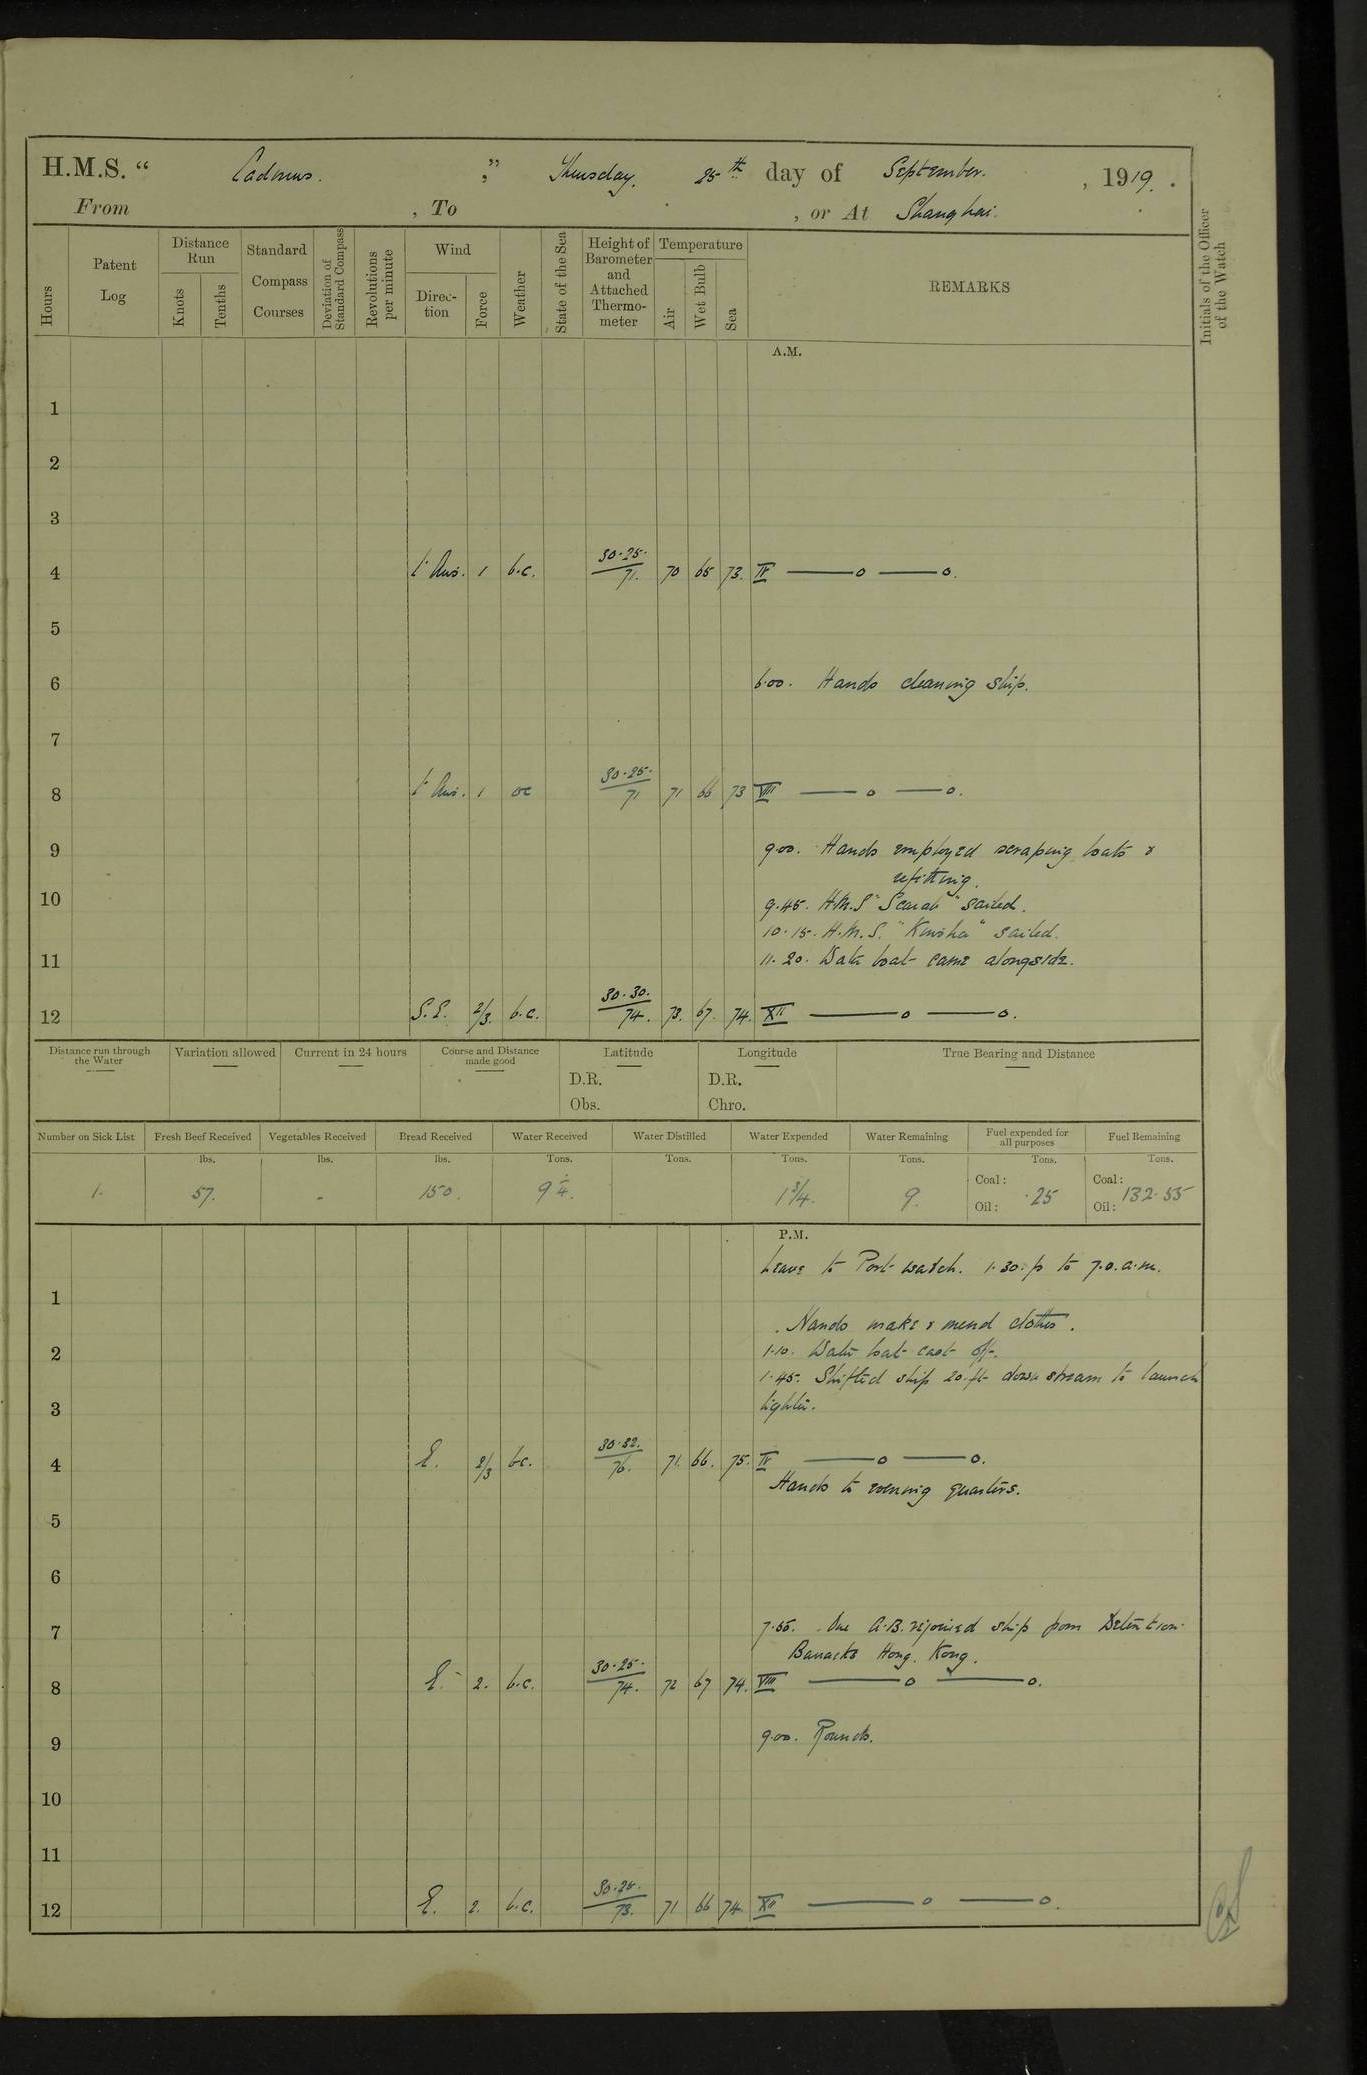 H.M.S. “ Cadmus. ,” Thursday. 25th day of September. , 1919.
From , To , or At Shanghai.
Hours
Patent Log
Distance Run
Knots
Tenths
Standard Compass Courses
Deviation of Standard Compass
Revolutions per minute
Wind
Direction
Force
Weather
State of the Sea
Height of Barometer and Attached Thermometer
Temperature
Air
Wet Bulb
Sea
REMARKS
Initials of the Officer of the Watch
A.M.
1
2
3
4 Lt Airs. 1 b.c. 30.25. / 71. 70 65 73. IV ——o ——o.
5
6 6.00. Hands cleaning ship.
7
8 Lt Airs. 1 oc 30.25. / 71 71 66 73 VIII ——o ——o.
9 9.00. Hands employed scraping boats &
refitting.
10 9.45. H.M.S "Scarab" sailed.
10.15. H.M.S. "Kinsha" sailed.
11 11.20. Water boat came alongside.
12 S.E. 2/3. b.c. 30.30. / 74. 73. 67. 74. XII ——o ——o.
Distance run through the Water
Variation allowed
Current in 24 hours
Course and Distance made good
Latitude
D.R.
Obs.
Longitude
D.R.
Chro.
True Bearing and Distance
Number on Sick List
Fresh Beef Received
Vegetables Received
Bread Received
Water Received
Water Distilled
Water Expended
Water Remaining
Fuel expended for all purposes
Fuel Remaining
lbs. lbs. lbs. Tons. Tons. Tons. Tons. Tons. Tons.
1. 57. - 150. 9 1/4. 1 3/4. 9. Coal: Oil: .25 Coal: Oil: 132.55
P.M.
Leave to Port watch. 1.30.p to 7.0.a.m.
1
Hands make & mend clothes.
2 1.10. Water boat cast off.
1.45. Shifted ship 20.ft down stream to launch
3 lighter.
4 E. 2/3 b.c. 30.32. / 76. 71. 66. 75. IV ——o ——o.
Hands to evening quarters.
5
6
7 7.55. One A.B. rejoined ship from Detention
Barracks Hong. Kong.
8 E. 2. b.c. 30.25. / 74. 72 67 74. VIII ——o ——o.
9 9.00. Rounds.
10
11
12 E. 2. b.c. 30.25. / 73. 71 66 74. XII ——o ——o.